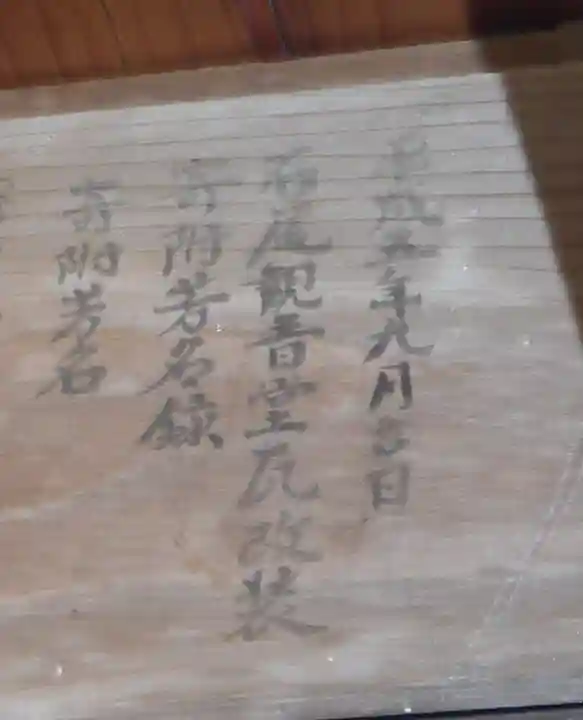 平成五年九月吉日
石尾観音堂瓦改装
寄附芳名録
寄附芳名